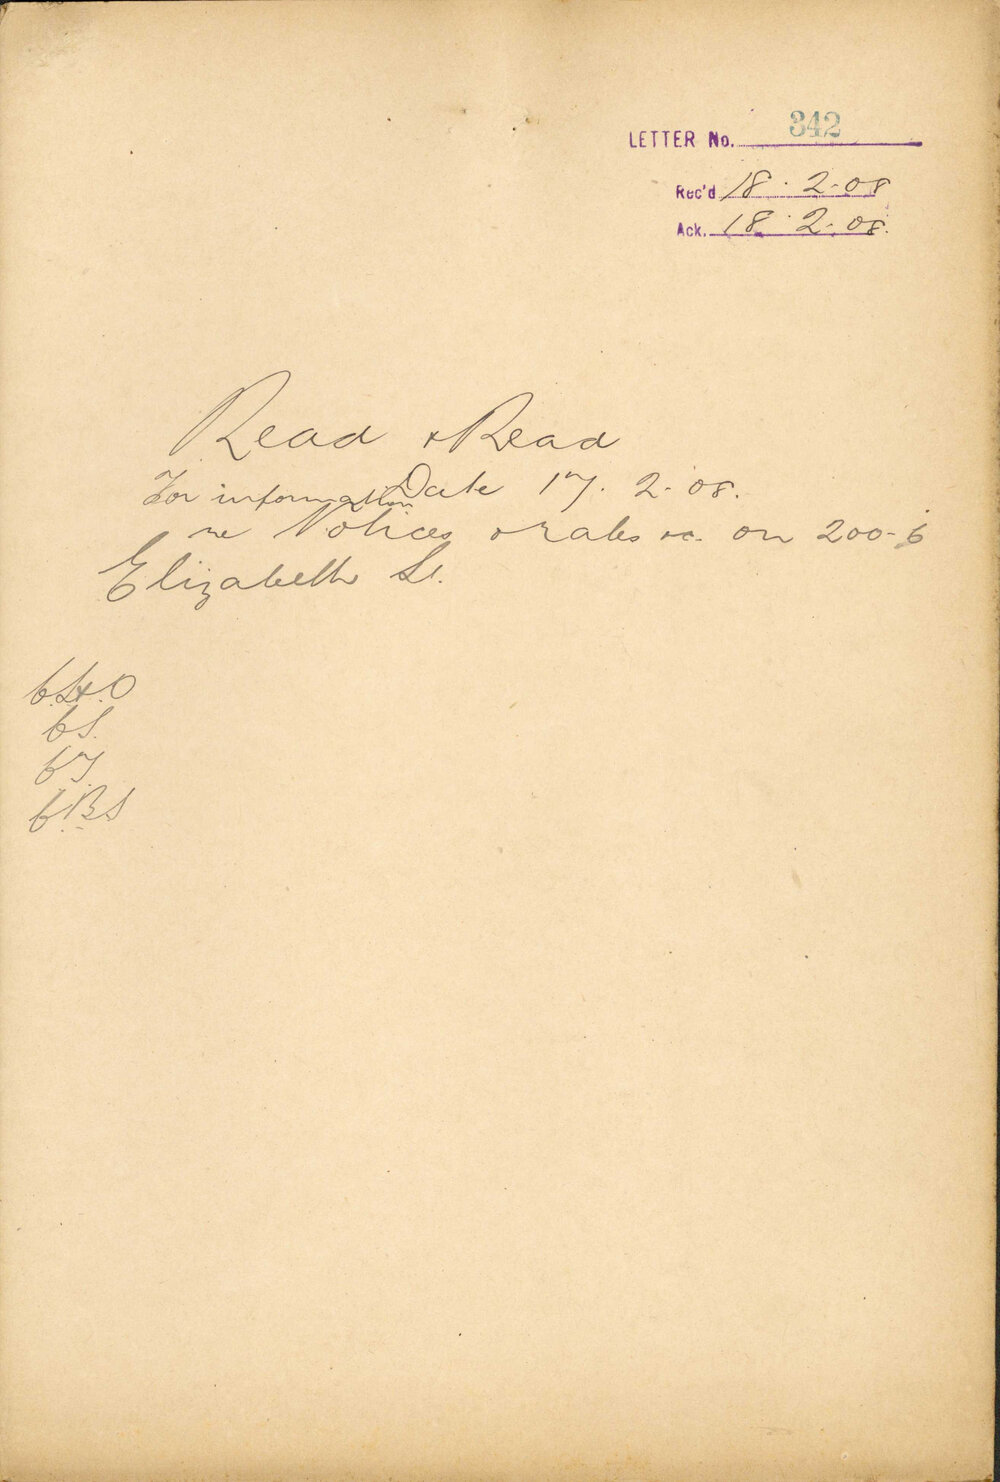 LETTER No. 342
Rec'd 18.2.08
Ack. 18.2.08.
Read & Read
For information Date 17.2.08.
re Notices & rates &c. on 200-6
Elizabeth St.
C.H.O
C S.
C T.
C.B.S